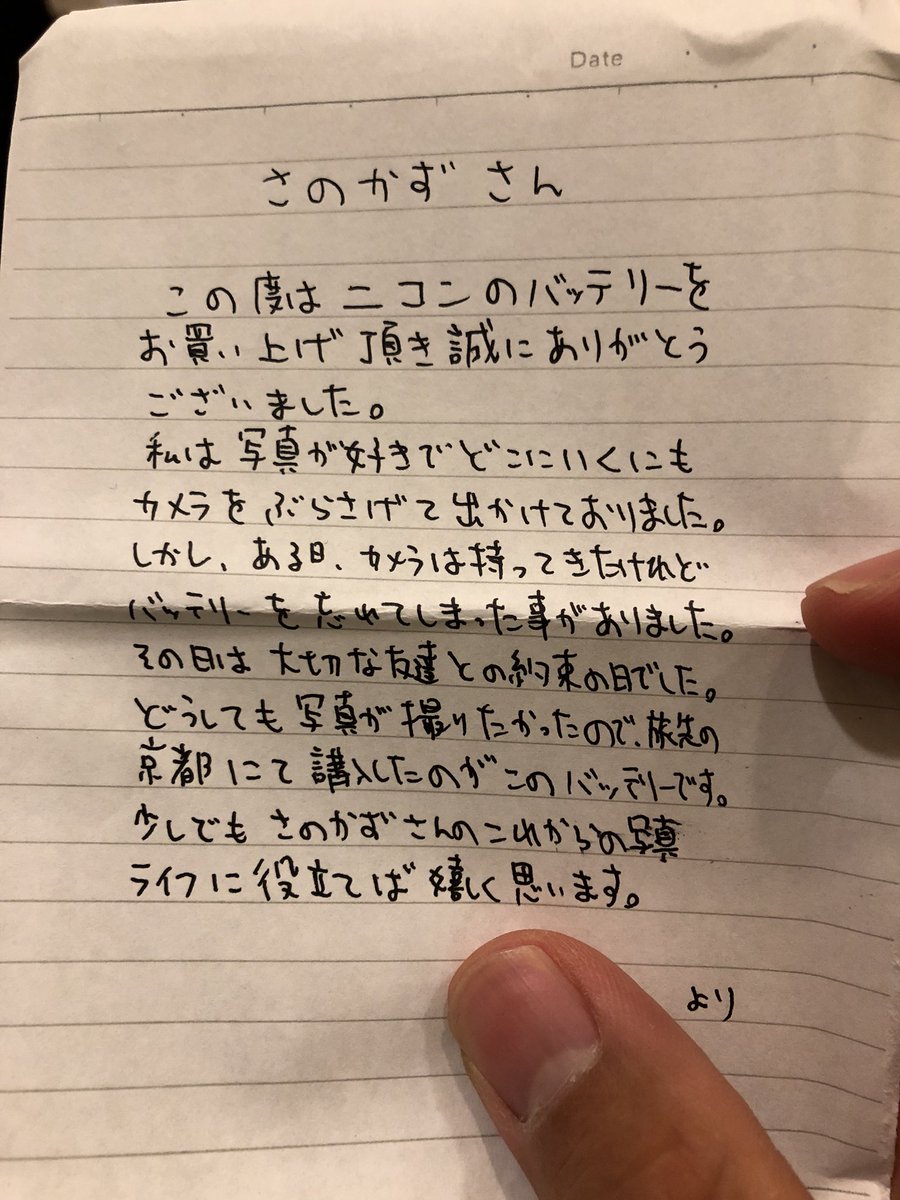 Date
さのかず さん
この度は ニコンのバッテリーを
お買い上げ頂き誠にありがとう
ございました。
私は写真が好きでどこにいくにも
カメラをぶらさげて出かけておりました。
しかし、ある日、カメラは持ってきたけれど
バッテリーを忘れてしまった事がありました。
その日は大切な友達との約束の日でした。
どうしても写真が撮りたかったので、旅先の
京都にて講入したのがこのバッテリーです。
少しでも さのかずさんのこれからの写真
ライフに役立てば嬉しく思います。
より